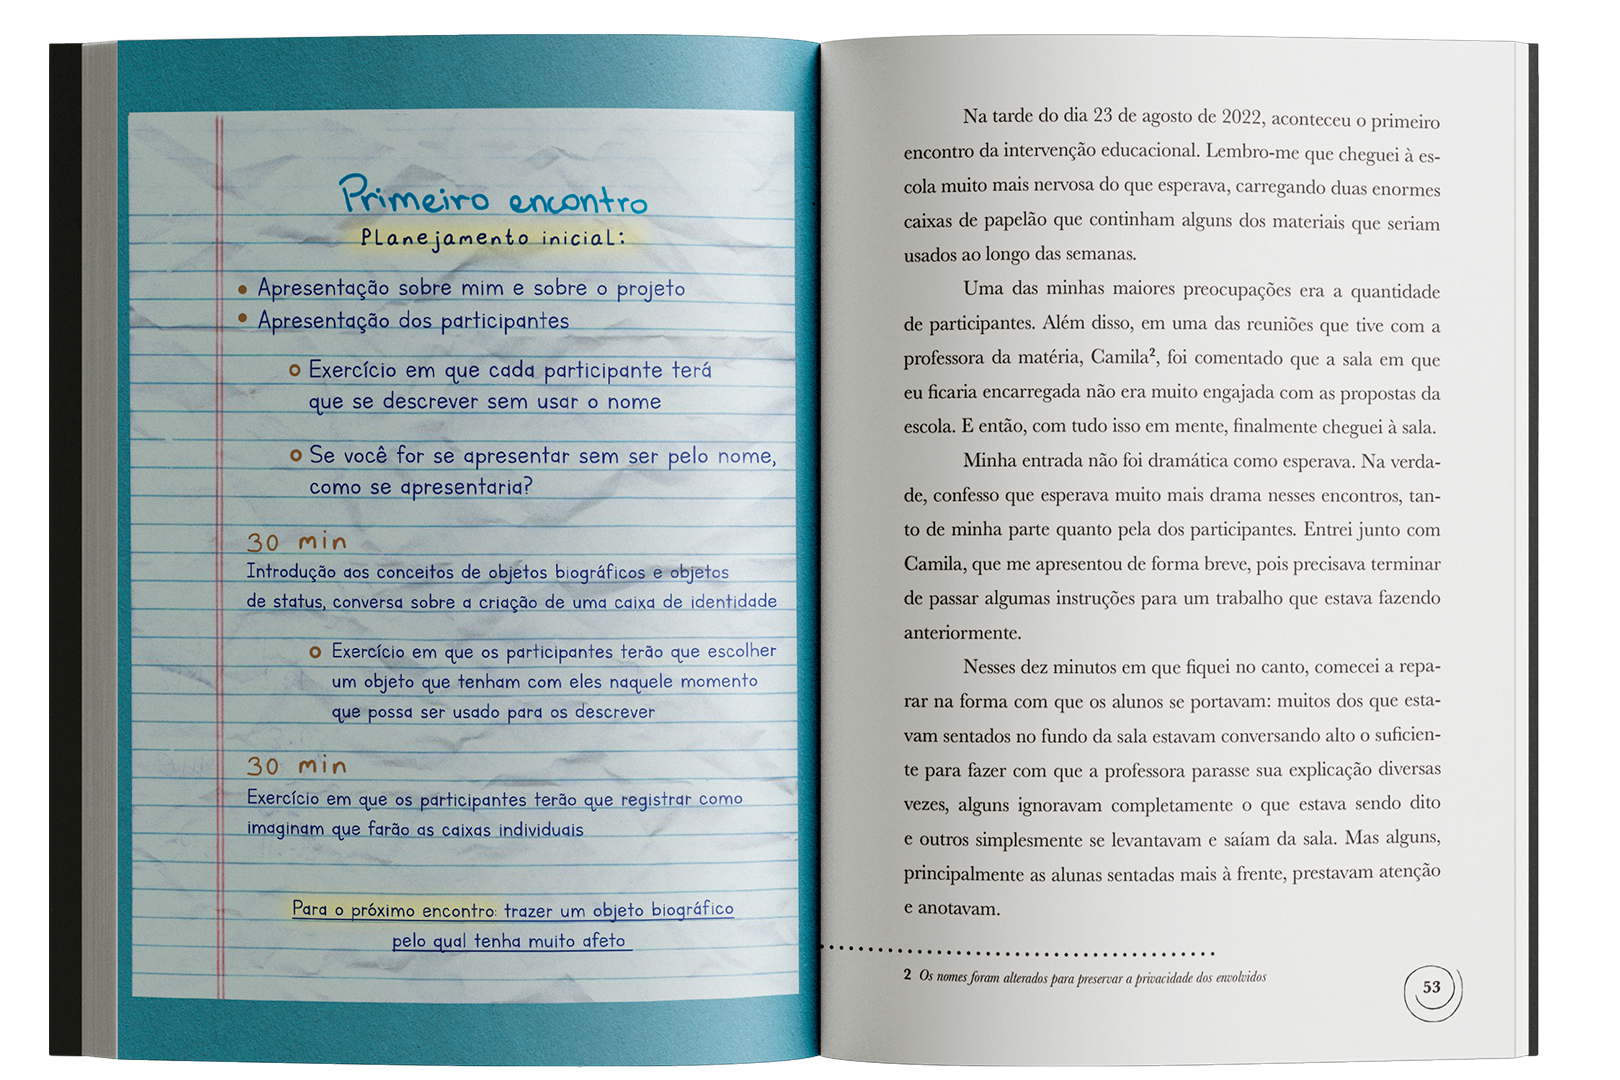 Primeiro encontro
Planejamento inicial:
• Apresentação sobre mim e sobre o projeto
• Apresentação dos participantes
Exercício em que cada participante terá
que se descrever sem usar o nome
Se você for se apresentar sem ser pelo nome,
como se apresentaria?
30 min
Introdução aos conceitos de objetos biográficos e objetos
de status, conversa sobre a criação de uma caixa de identidade
Exercício em que os participantes terão que escolher
um objeto que tenham com eles naquele momento
que possa ser usado para os descrever
30 min
Exercício em que os participantes terão que registrar como
imaginam que farão as caixas individuais
Para o próximo encontro: trazer um objeto biográfico
pelo qual tenha muito afeto
Na tarde do dia 23 de agosto de 2022, aconteceu o primeiro
encontro da intervenção educacional. Lembro-me que cheguei à es-
cola muito mais nervosa do que esperava, carregando duas enormes
caixas de papelão que continham alguns dos materiais que seriam
usados ao longo das semanas.
Uma das minhas maiores preocupações era a quantidade
de participantes. Além disso, em uma das reuniões que tive com a
professora da matéria, Camila², foi comentado que a sala em que
eu ficaria encarregada não era muito engajada com as propostas da
escola. E então, com tudo isso em mente, finalmente cheguei à sala.
Minha entrada não foi dramática como esperava. Na verda-
de, confesso que esperava muito mais drama nesses encontros, tan-
to de minha parte quanto pela dos participantes. Entrei junto com
Camila, que me apresentou de forma breve, pois precisava terminar
de passar algumas instruções para um trabalho que estava fazendo
anteriormente.
Nesses dez minutos em que fiquei no canto, comecei a repa-
rar na forma com que os alunos se portavam: muitos dos que esta-
vam sentados no fundo da sala estavam conversando alto o suficien-
te para fazer com que a professora parasse sua explicação diversas
vezes, alguns ignoravam completamente o que estava sendo dito
e outros simplesmente se levantavam e saíam da sala. Mas alguns,
principalmente as alunas sentadas mais à frente, prestavam atenção
e anotavam.
2 Os nomes foram alterados para preservar a privacidade dos envolvidos
53